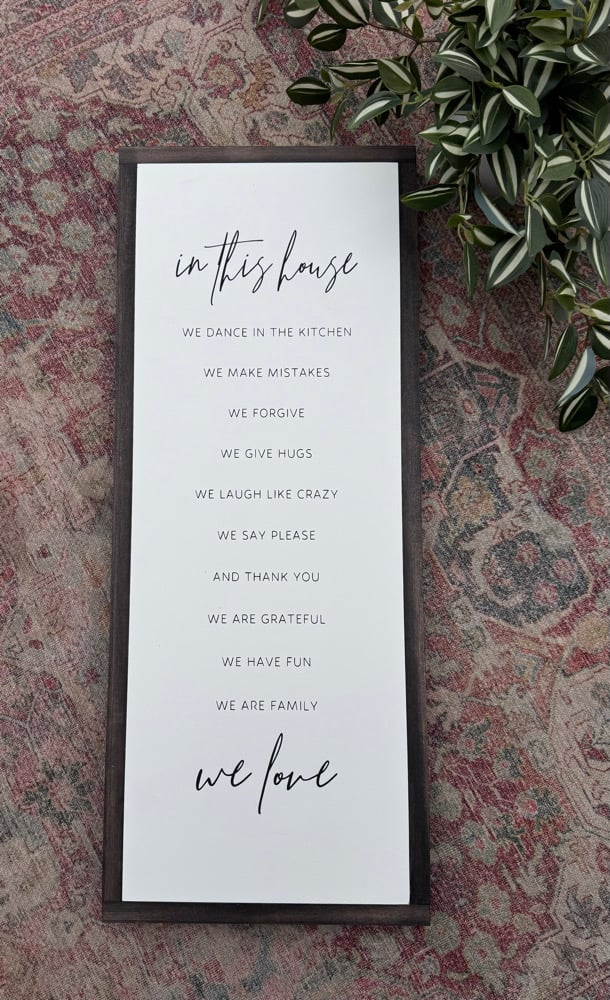 in this house
WE DANCE IN THE KITCHEN
WE MAKE MISTAKES
WE FORGIVE
WE GIVE HUGS
WE LAUGH LIKE CRAZY
WE SAY PLEASE
AND THANK YOU
WE ARE GRATEFUL
WE HAVE FUN
WE ARE FAMILY
we love